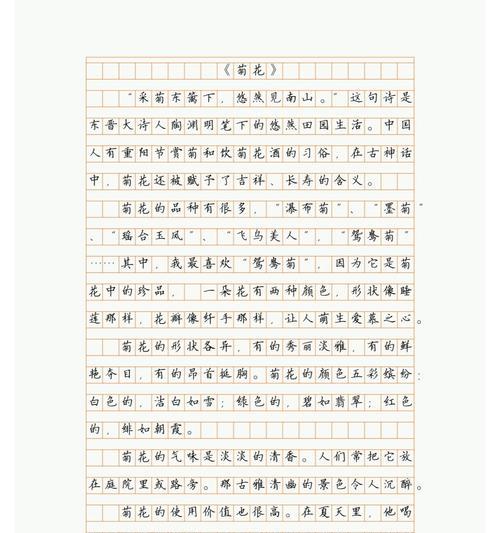 《菊花》
“采菊东篱下，悠然见南山。”这句诗是
东晋大诗人陶渊明笔下的悠然田园生活。中国
人有重阳节赏菊和饮菊花酒的习俗，在古神话
中，菊花还被赋予了吉祥、长寿的含义。
菊花的品种有很多，“瀑布菊”、“墨菊”
、“瑶台玉凤”、“飞鸟美人”，“鸳鸯菊”
……其中，我最喜欢“鸳鸯菊”，因为它是菊
花中的珍品， 一朵花有两种颜色，形状像睡
莲那样，花瓣像纤手那样，让人萌生爱慕之心。
菊花的形状各异，有的秀丽淡雅，有的鲜
艳夺目，有的昂首挺胸。菊花的颜色五彩缤纷：
白色的，洁白如雪；绿色的，碧如翡翠；红色
的，绯如朝霞。
菊花的气味是淡淡的清香。人们常把它放
在庭院里或路旁。那古雅清幽的景色令人沉醉。
菊花的使用价值也很高。在夏天里，他喝